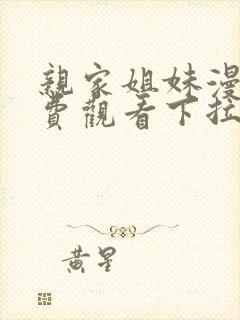 親家姐妹漫
費觀看下拉
黃星